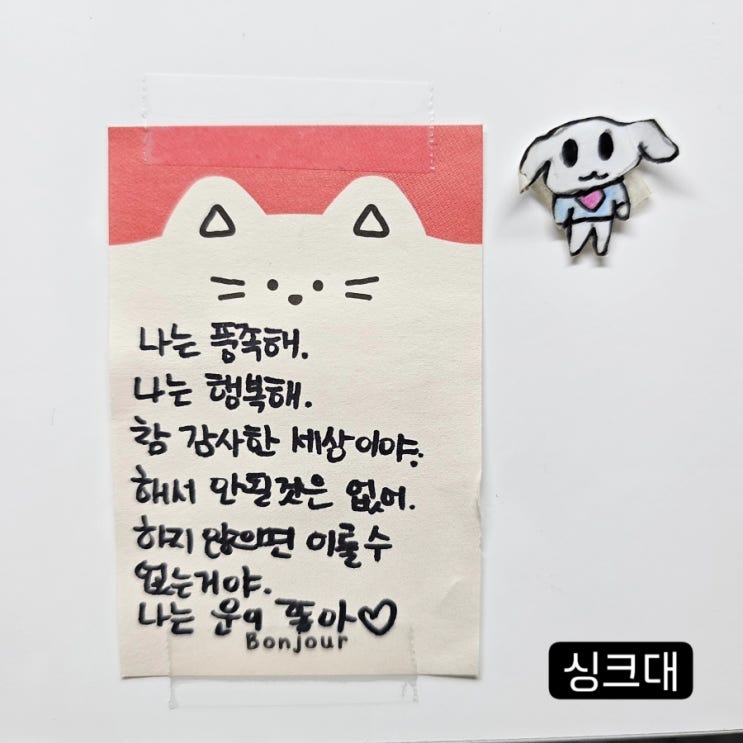 나는 풍족해.
나는 행복해.
참 감사한 세상이야.
해서 안될것은 없어.
하지 않으면 이룰수
없는거야.
나는 운이 좋아♡
Bonjour
싱크대